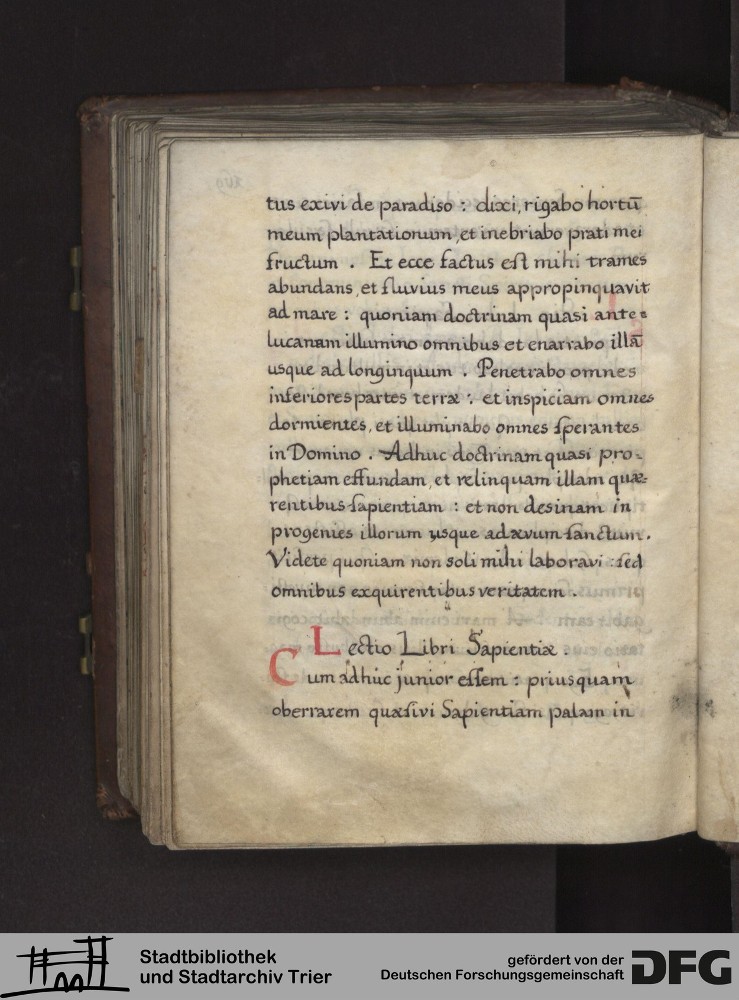 tus exivi de paradiso : dixi, rigabo hortū
meum plantationum, et inebriabo prati mei
fructum . Et ecce factus eſt mihi trames
abundans, et fluvius meus appropinquavit
ad mare : quoniam doctrinam quasi ante=
lucanam illumino omnibus et enarrabo illā
usque ad longinquum . Penetrabo omnes
inferiores partes terræ : et inspiciam omnes
dormientes, et illuminabo omnes ſperantes
in Domino . Adhuc doctrinam quasi pro=
phetiam effundam, et relinquam illam quæ=
rentibus ſapientiam : et non desinam in
progenies illorum usque ad ævum ſanctum .
Videte quoniam non soli mihi laboravi : ſed
omnibus exquirentibus veritatem .
Lectio Libri Sapientiæ .
Cum adhuc junior eſſem : priusquam
oberrarem quæſivi Sapientiam palam in
Stadtbibliothek
und Stadtarchiv Trier
gefördert von der
Deutschen Forschungsgemeinschaft
DFG